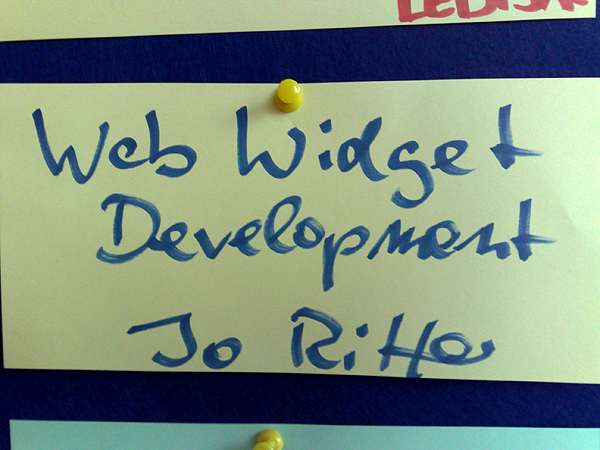 Web Widget
Development
Jo Ritter